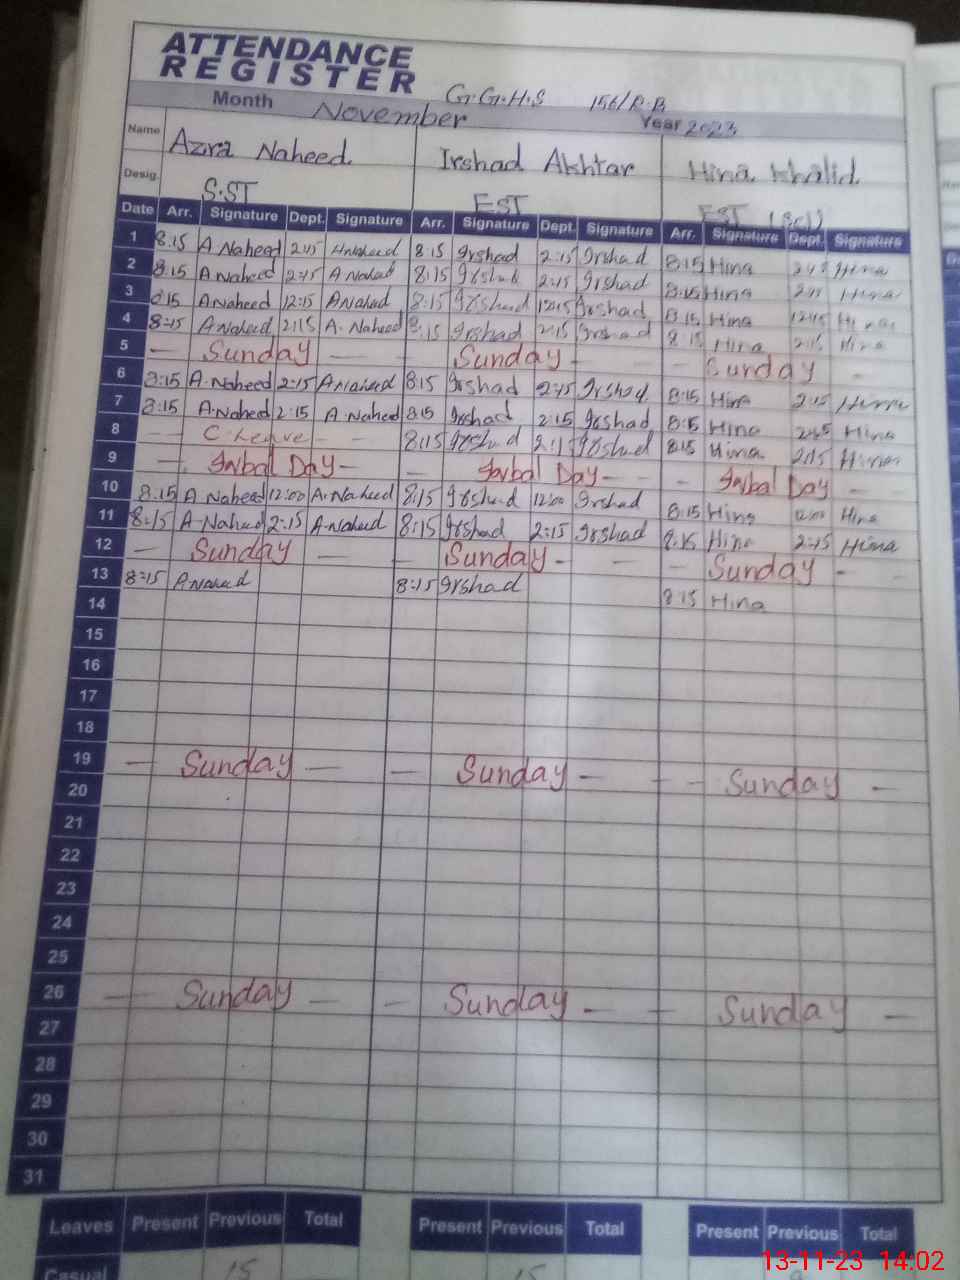 ATTENDANCE
REGISTER
G.G.H.S 156/R.B
Month November Year 2023
Name Azra Naheed Irshad Akhtar Hina Khalid
Desig. S.ST EST EST (Sci)
Date Arr. Signature Dept. Signature Arr. Signature Dept. Signature Arr. Signature Dept. Signature
1 8:15 A Naheed 2:15 A Naheed 8:15 Irshad 2:15 Irshad 8:15 Hina Hina
2 8:15 A Naheed 2:15 A Naheed 8:15 Irshad 2:15 Irshad 8:15 Hina Hina
3 8:15 A Naheed 12:15 A Naheed 8:15 Irshad 12:15 Irshad 8:15 Hina 12:15 Hina
4 8:15 A.Naheed 2:15 A. Naheed 8:15 Irshad 2:15 Irshad 8:15 Hina 2:15 Hina
5 — Sunday — — Sunday — - Sunday -
6 8:15 A.Naheed 2:15 A Naheed 8:15 Irshad 2:15 Irshad 8:15 Hina 2:15 Hina
7 8:15 A.Naheed 2:15 A.Naheed 8:15 Irshad 2:15 Irshad 8:15 Hina Hina
8 — C.Leave - - 8:15 Irshad 2:15 Irshad 8:15 Hina 2:15 Hina
9 — Iqbal Day - - Iqbal Day - - - Iqbal Day -
10 8:15 A Naheed 12:00 A.Naheed 8:15 Irshad 12:00 Irshad 8:15 Hina 12:00 Hina
11 8:15 A-Naheed 2:15 A.Naheed 8:15 Irshad 2:15 Irshad 8:15 Hina 2:15 Hina
12 — Sunday — — Sunday - — - Sunday -
13 8:15 A.Naheed 8:15 Irshad 8:15 Hina
14
15
16
17
18
19 — Sunday — — Sunday — - - Sunday —
20
21
22
23
24
25
26 — Sunday — - Sunday — — Sunday —
27
28
29
30
31
Leaves Present Previous Total Present Previous Total Present Previous Total
Casual 15 15
13-11-23 14:02